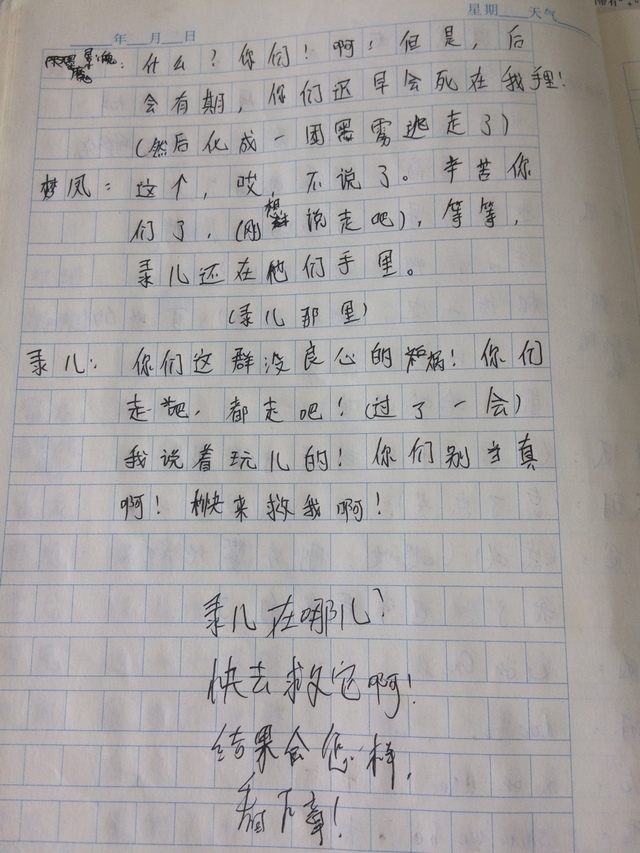 星期 天气
年 月 日
什么？你们！啊！但是，后
会有期，你们迟早会死在我手里！
(然后化成一团黑雾逃走了)
梦凤：这个，哎，不说了。辛苦你
们了，(刚想说走吧)，等等，
录儿还在他们手里。
(录儿那里)
录儿：你们这群没良心的！你们
走吧，都走吧！(过了一会)
我说着玩儿的！你们别当真
啊！快来救我啊！
录儿在哪儿？
快去救它啊！
结果会怎样，
看下章！